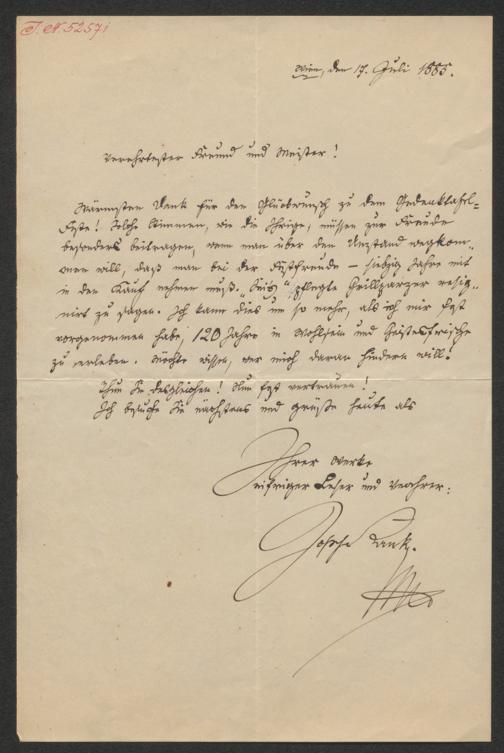 J. N. 52571
Wien, den 17. Juli 1885.
Verehrtester Freund und Meister!
Wärmsten Dank für den Glückwunsch zu dem Gedenktafel-
Feste! Solche Stimmen, wie die Ihrige, müssen zur Freude
besonders beitragen, wenn man über den Umstand wegkom-
men will, daß man bei der Festfreude – siebzig Jahre mit
in den Kauf nehmen muß. pflegte Grillparzer resig-
nirt zu sagen. Ich kann dies um so mehr, als ich mir fest
vorgenommen habe, 120 Jahre in Wohlsein und Geistesfrische
zu erleben. Möchte wissen, wer mich daran hindern will!
Thun Sie desgleichen! Nun fest vertrauen!
Ich besuche Sie nächstens und grüße heute als
Ihrer Werke
eifriger Leser und Verehrer:
Josef Rank.